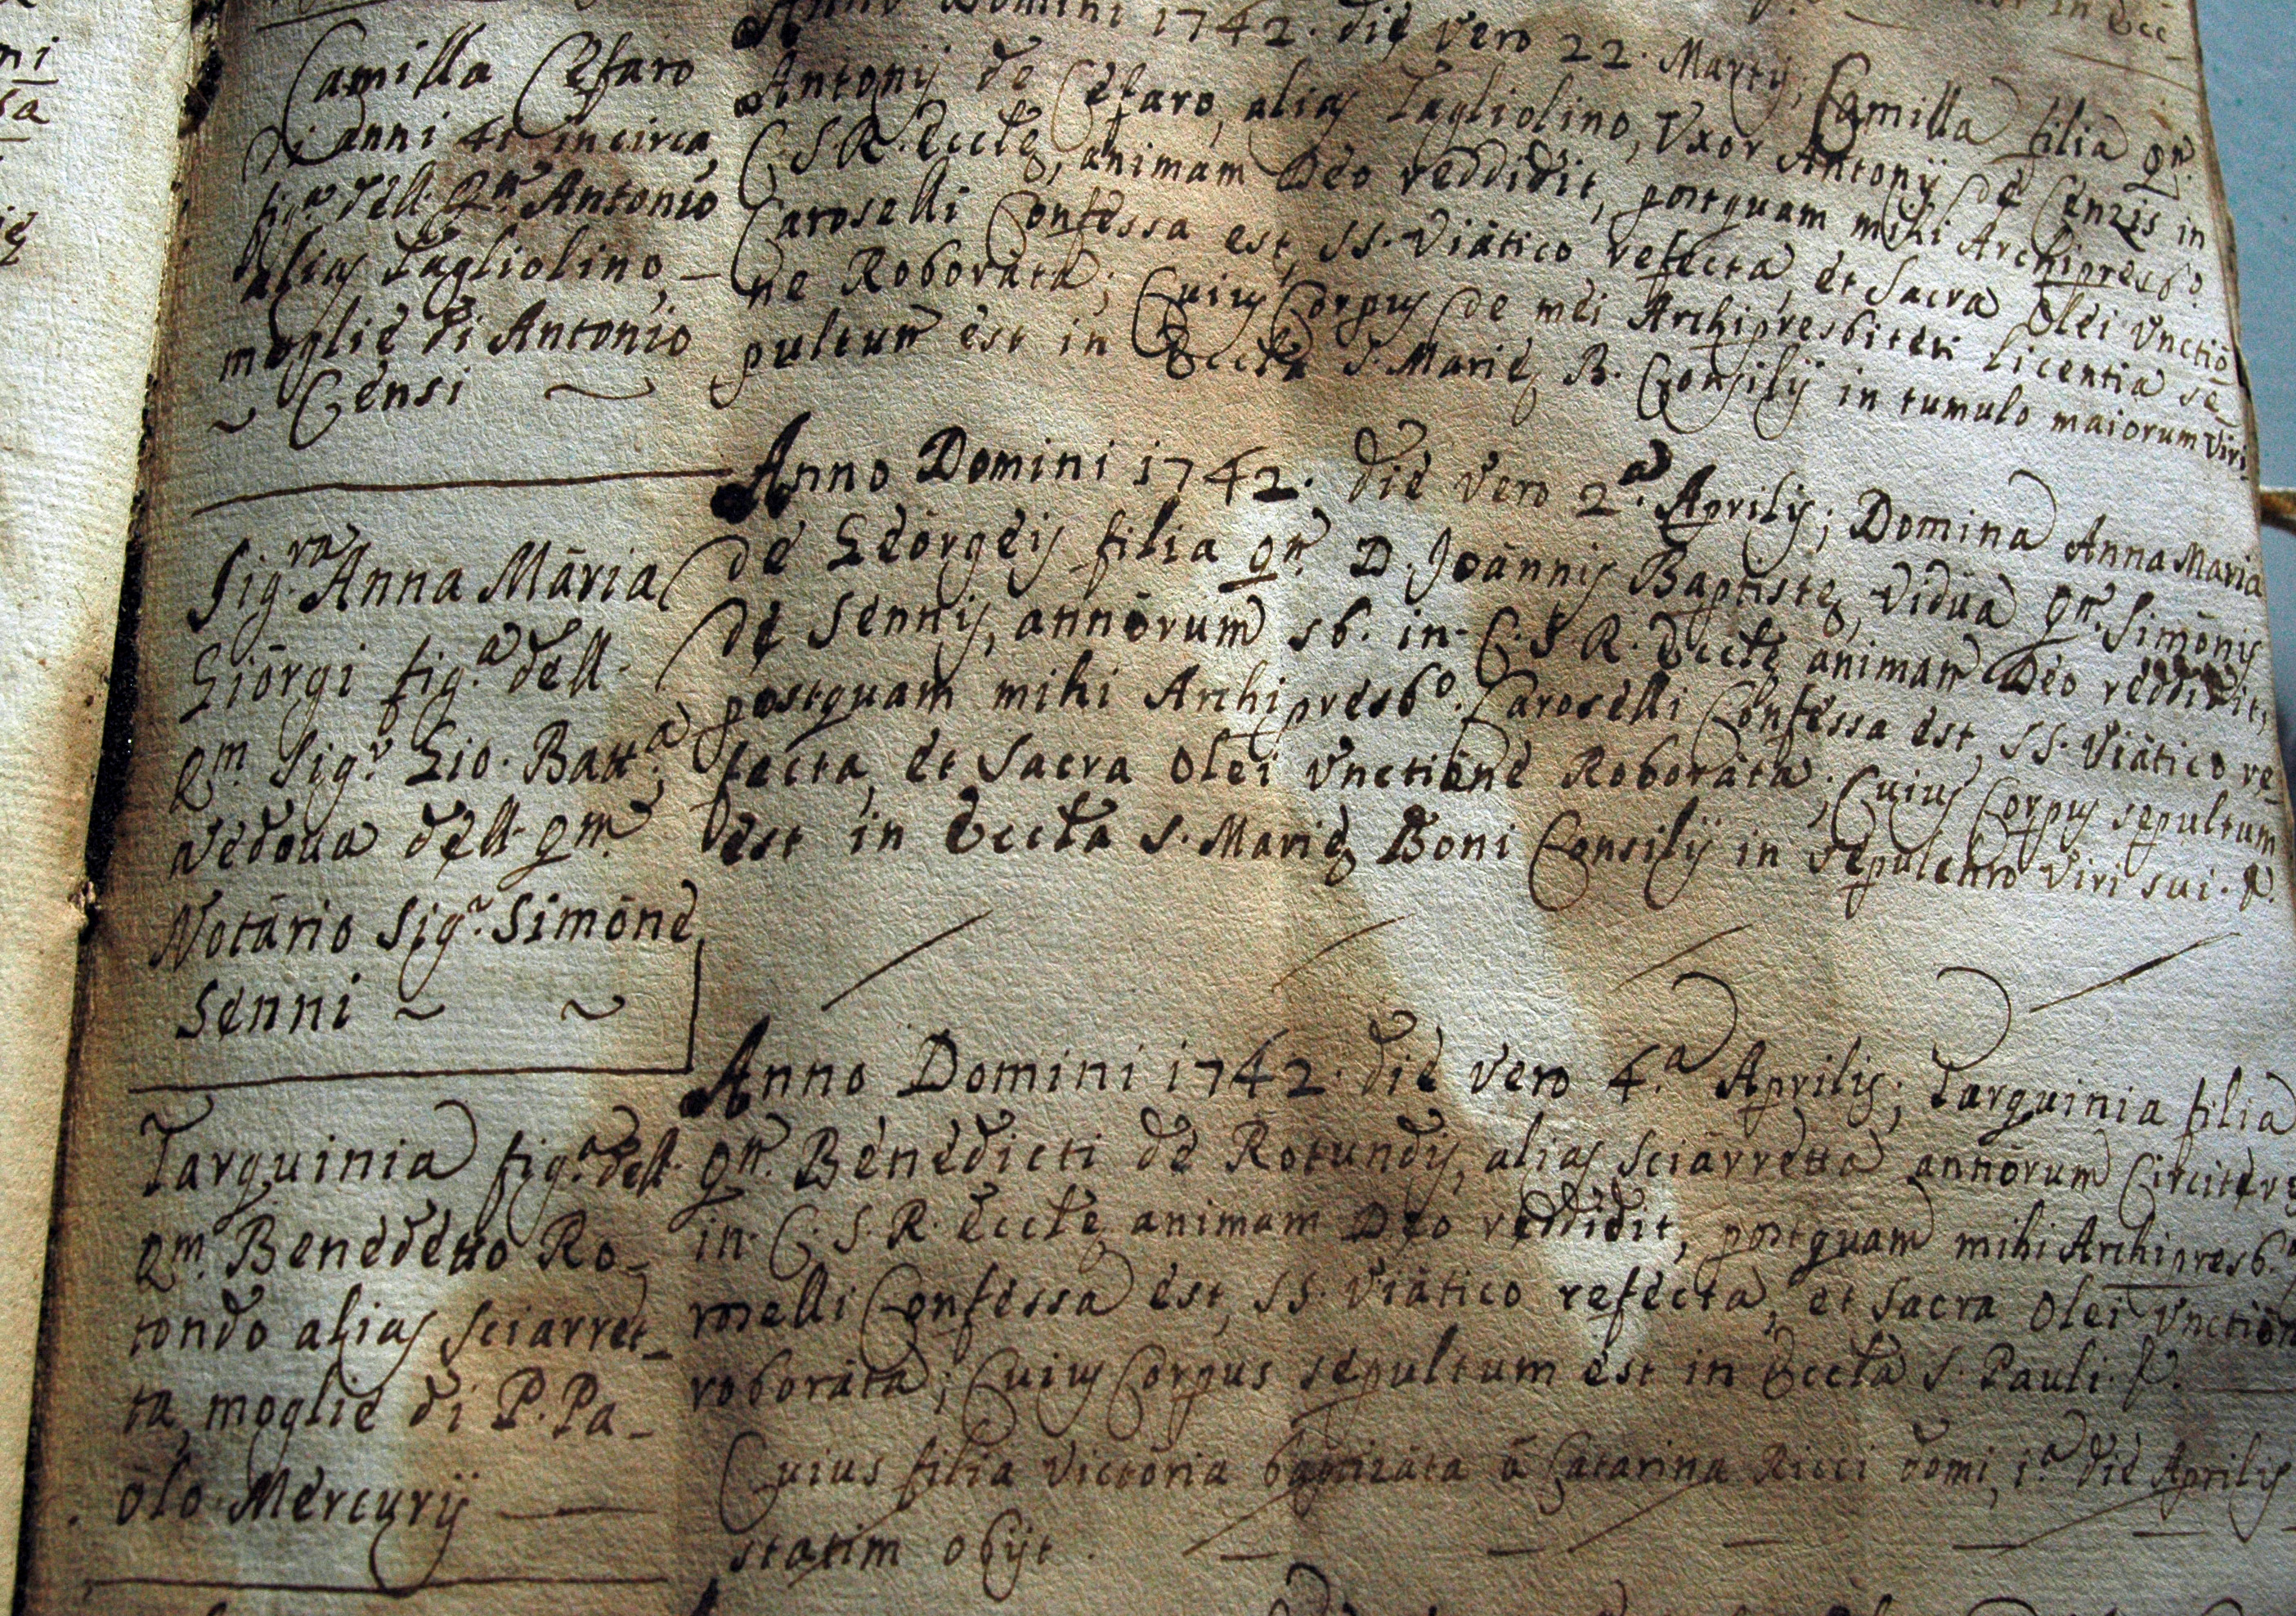 Camilla Cesaro
di anni 41 incirca,
fig.ª dell. Qm. Antonio
alias Tagliolino,
moglie di Antonio
Censi
Anno Domini 1742. die vero 22. Martij; Camilla filia qm.
Antonij de Cesaro, alias Tagliolino, Uxor Antonij de Censis in
C. S. R. Eccłe, animam Deo reddidit, postquam mihi Archipresb.º
Caroselli Confessa est, SS. Viatico refecta, et Sacra Olei Unctio
ne Roborata; Cuius Corpus de mei Archipresbiteri licentia se
pultum est in Eccła S. Marie B. Consilij in tumulo maiorum Viri
Sig.ra Anna Maria
Giorgi fig.ª dell.
Qm. Sig.r Gio. Batt.ª
Vedoua dell. qm.
Notario Sig.r Simone
Senni
Anno Domini 1742. die vero 2.ª Aprilis; Domina Anna Maria
de Georgeis filia qm. D. Joannis Baptiste, vidua qm. Simonis
de Sennis, annorum 56. in C. S. R. Eccłe animam Deo reddidit,
postquam mihi Archipresb.º Caroselli Confessa est, SS. Viatico re-
fecta, et Sacra Olei Unctione Roborata; Cuius Corpus sepultum
est in Eccła S. Marie Boni Consilij in sepulchro Viri sui.
Tarquinia fig.ª dell.
Qm. Benedetto Ro-
tondo alias Sciarret-
ta, moglie di P. Pa-
olo Mercurij
Anno Domini 1742. die vero 4.ª Aprilis; Tarquinia filia
qm. Benedicti de Rotundis, alias Sciarretta annorum Circiter
in C. S. R. Eccłe animam Deo reddidit, postquam mihi Archipresb.º
roselli Confessa est, SS. Viatico refecta, et Sacra Olei Unction
roborata; Cuius Corpus sepultum est in Eccła S. Pauli.
Cuius filia Victoria baptizata à Catarina Ricci domi, 1.ª die Aprilis
statim obijt.